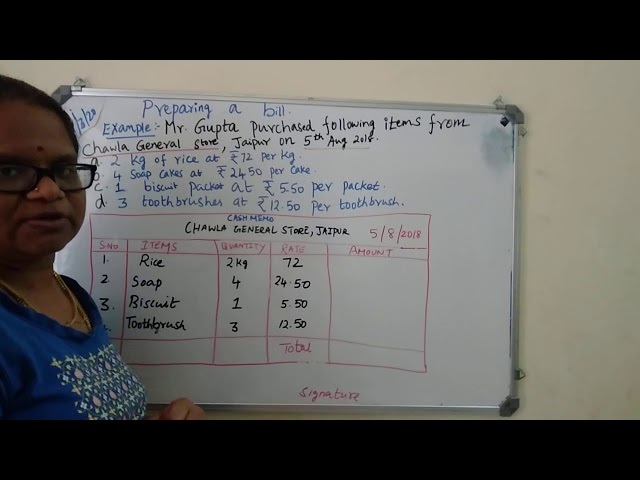 Preparing a bill.
Example:- Mr. Gupta purchased following items from
Chawla General store, Jaipur on 5th Aug 2018.
a. 2 kg of rice at ₹72 per kg.
b. 4 Soap Cakes at ₹24.50 per Cake.
c. 1 biscuit packet at ₹5.50 per packet.
d. 3 toothbrushes at ₹12.50 per toothbrush.
CASH MEMO
CHAWLA GENERAL STORE, JAIPUR 5/8/2018
S.NO ITEMS QUANTITY RATE AMOUNT
1. Rice 2 kg 72
2. Soap 4 24.50
3. Biscuit 1 5.50
Toothbrush 3 12.50
Total
Signature